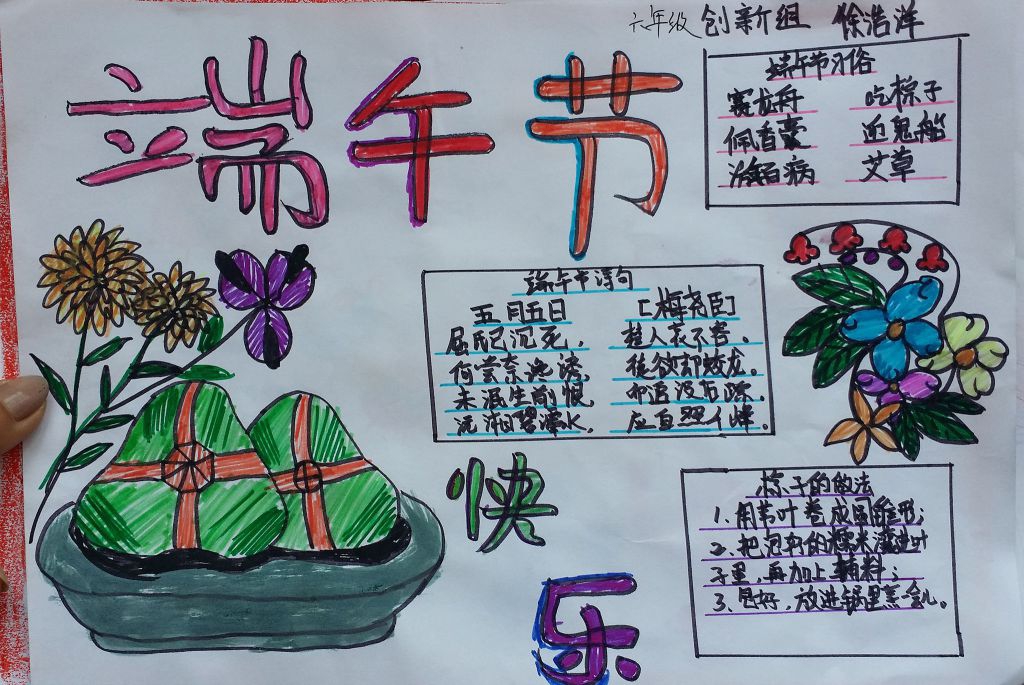 六年级 创新组 徐浩洋
端午节
端午节习俗
赛龙舟 吃粽子
佩香囊 鬼船
治百病 艾草
端午节诗句
五月五日 [梅尧臣]
屈氏已沉死， 楚人哀不容。
何尝奈谗谤， 徒欲却蛟龙。
未泯生前恨， 而追没后踪。
沅湘碧潭水， 应自照千峰。
快
乐
粽子的做法
1、用叶卷成圆锥形；
2、把的糯米灌进叶
子里，再加上辅料；
3、包好，放进锅里蒸一会儿。